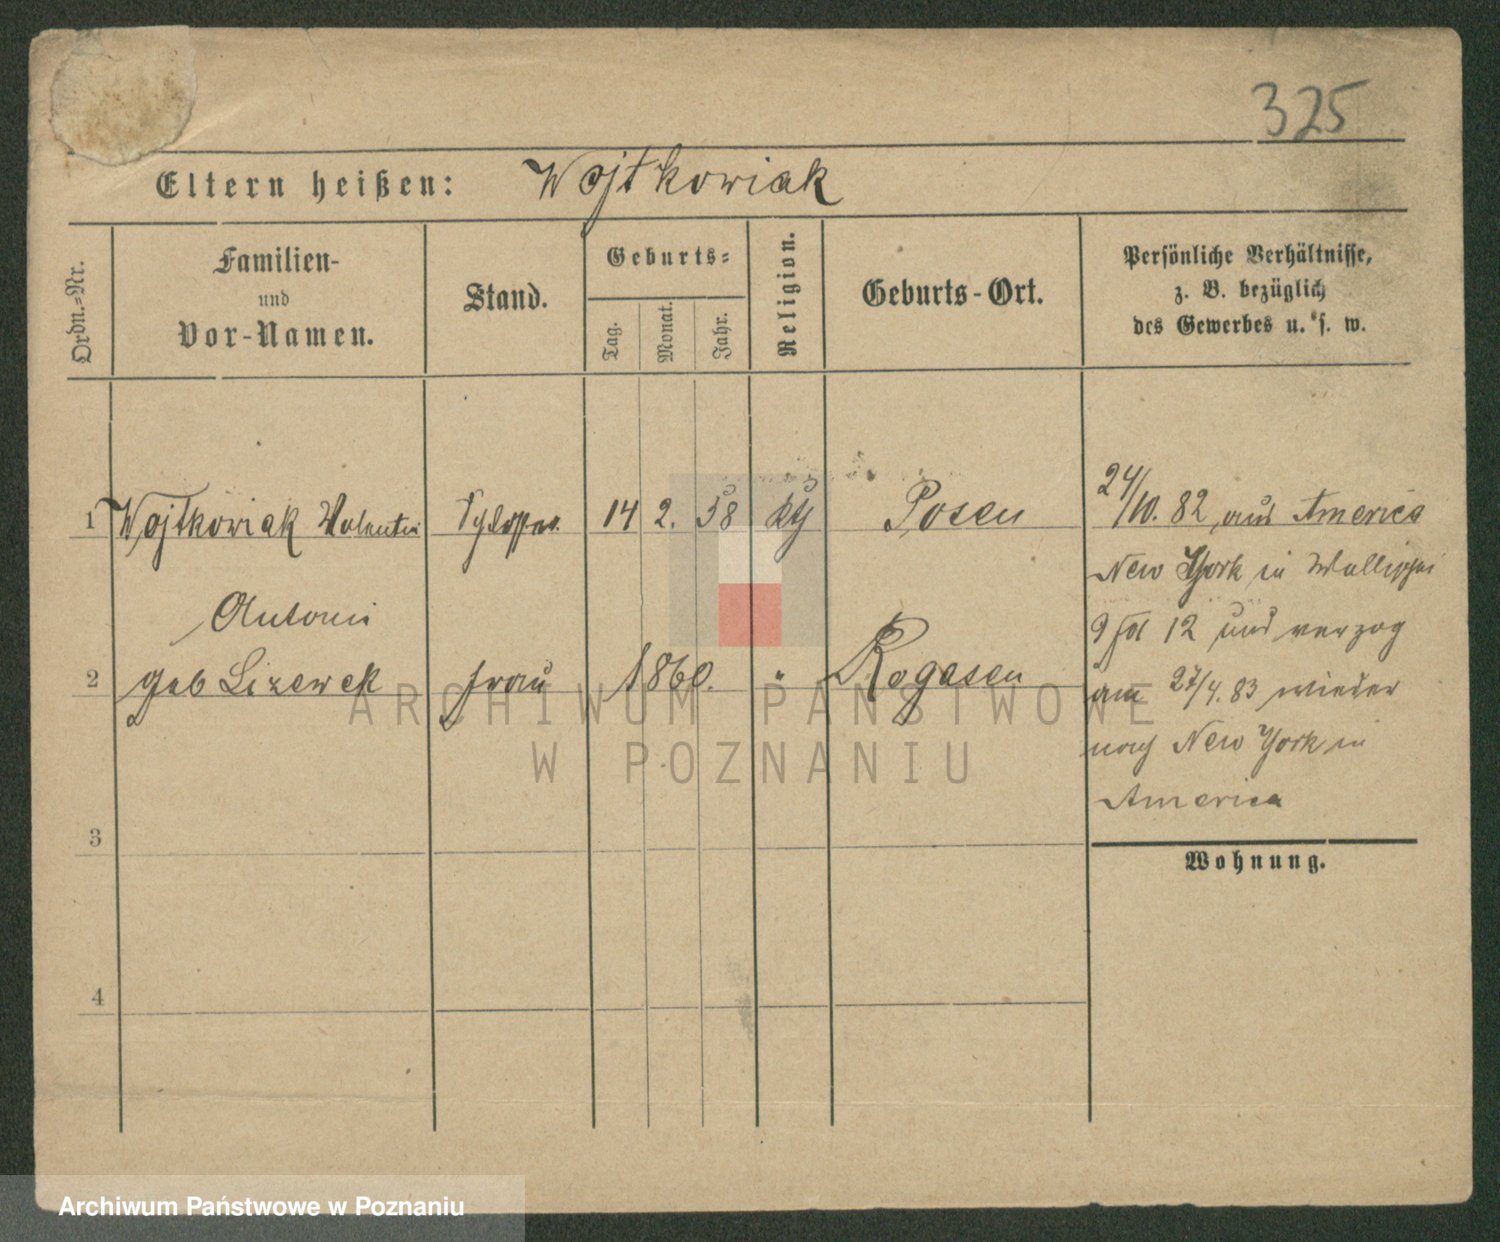 325
Eltern heißen: Wojtkowiak
Ordn.-Nr.
Familien-
und
Vor-Namen.
Stand.
Geburts-
Tag.
Monat.
Jahr.
Religion.
Geburts-Ort.
Persönliche Verhältnisse,
z. B. bezüglich
des Gewerbes u. s. w.
1 Wojtkowiak Valentin Schlosser 14 2. 58 Posen
24/10. 82 aus America
New York in
9 12 und verzog
am 27/4. 83 wieder
nach New York in
America
Antoni
2 geb Lizewek frau 1860. " Rogasen
3
4
Wohnung.
ARCHIWUM PAŃSTWOWE
W POZNANIU
Archiwum Państwowe w Poznaniu